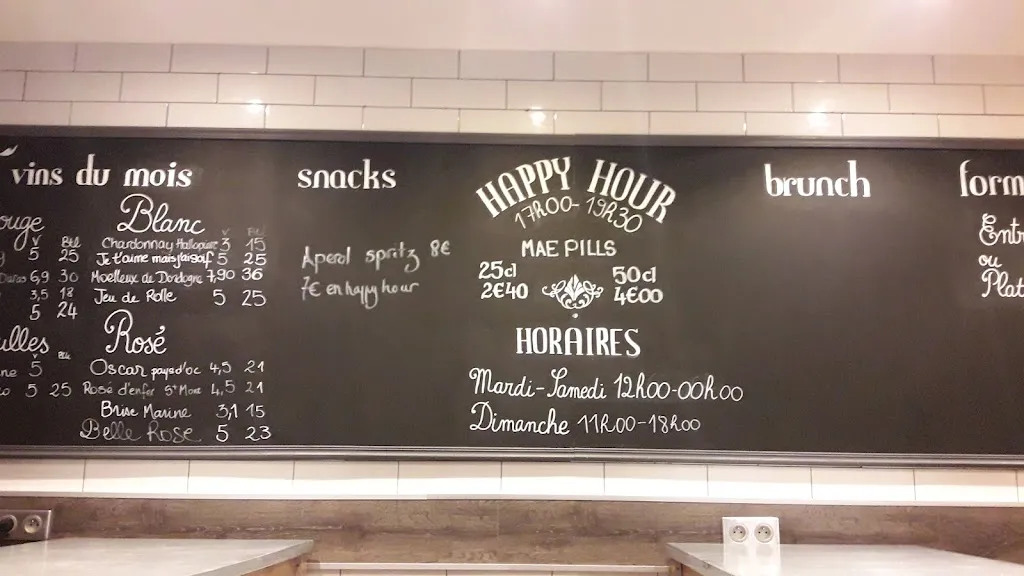 vins du mois
ouge
V Btl
5 25
6,9 30
3,5 18
5 24
ulles
V Btl
ne 5
o 5 25
Blanc
V Btl
Chardonnay 3 15
Je t'aime mais j'ai soif 5 25
Moelleux de Dordogne 7,90 36
Jeu de Rolle 5 25
Rosé
Oscar pays d'oc 4,5 21
Rosé d'enfer 4,5 21
Brise Marine 3,1 15
Belle Rose 5 23
snacks
Aperol spritz 8€
7€ en happy hour
HAPPY HOUR
17h00-19h30
MAE PILLS
25cl 50cl
2€40 4€00
HORAIRES
Mardi-Samedi 12h00-00h00
Dimanche 11h00-18h00
brunch
form
Entr
ou
Plat